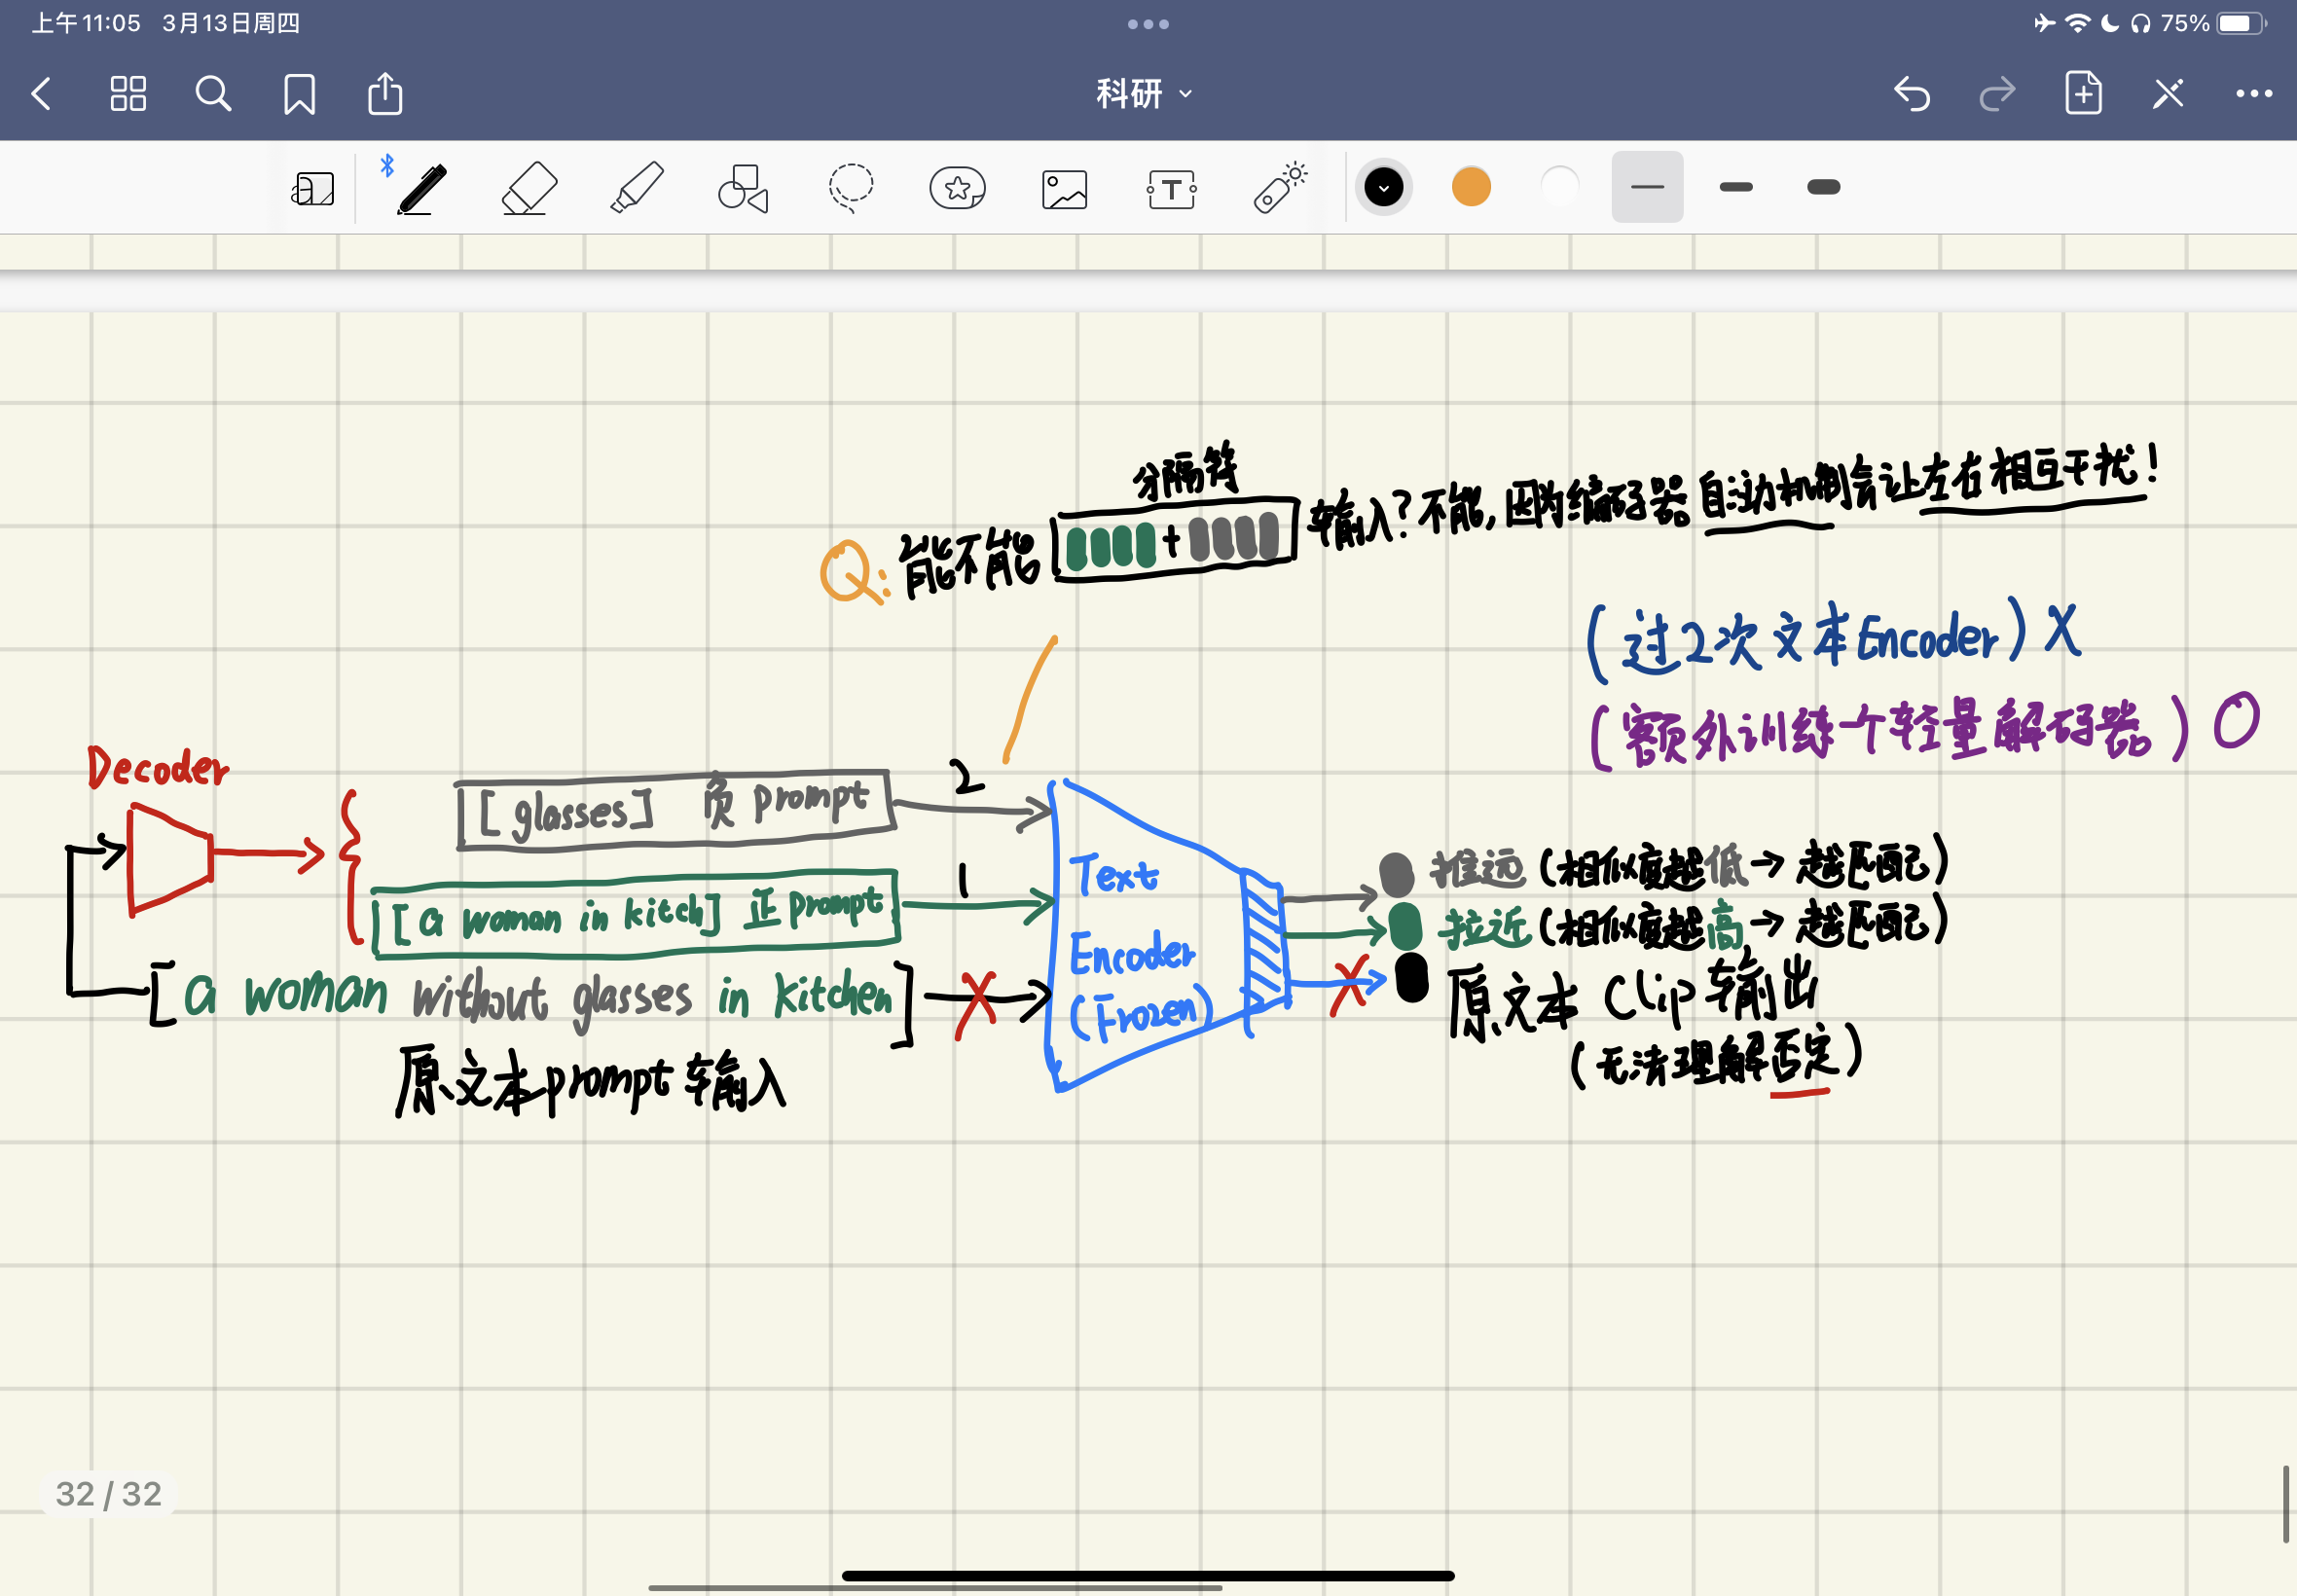 上午11:05 3月13日周四
75%
科研
分隔符
Q: 能不能 + 输入?不能,因为编码器自动机制会让左右相互干扰!
(过2次文本Encoder) X
(额外训练一个轻量解码器) O
Decoder
[glasses] 负 prompt
2
[a woman in kitch] 正 prompt
1
[a woman without glasses in kitchen]
原文本prompt 输入
Text
Encoder
(Frozen)
推远(相似度越低→越匹配)
拉近(相似度越高→越匹配)
原文本 Clip 输出
(无法理解否定)
32 / 32